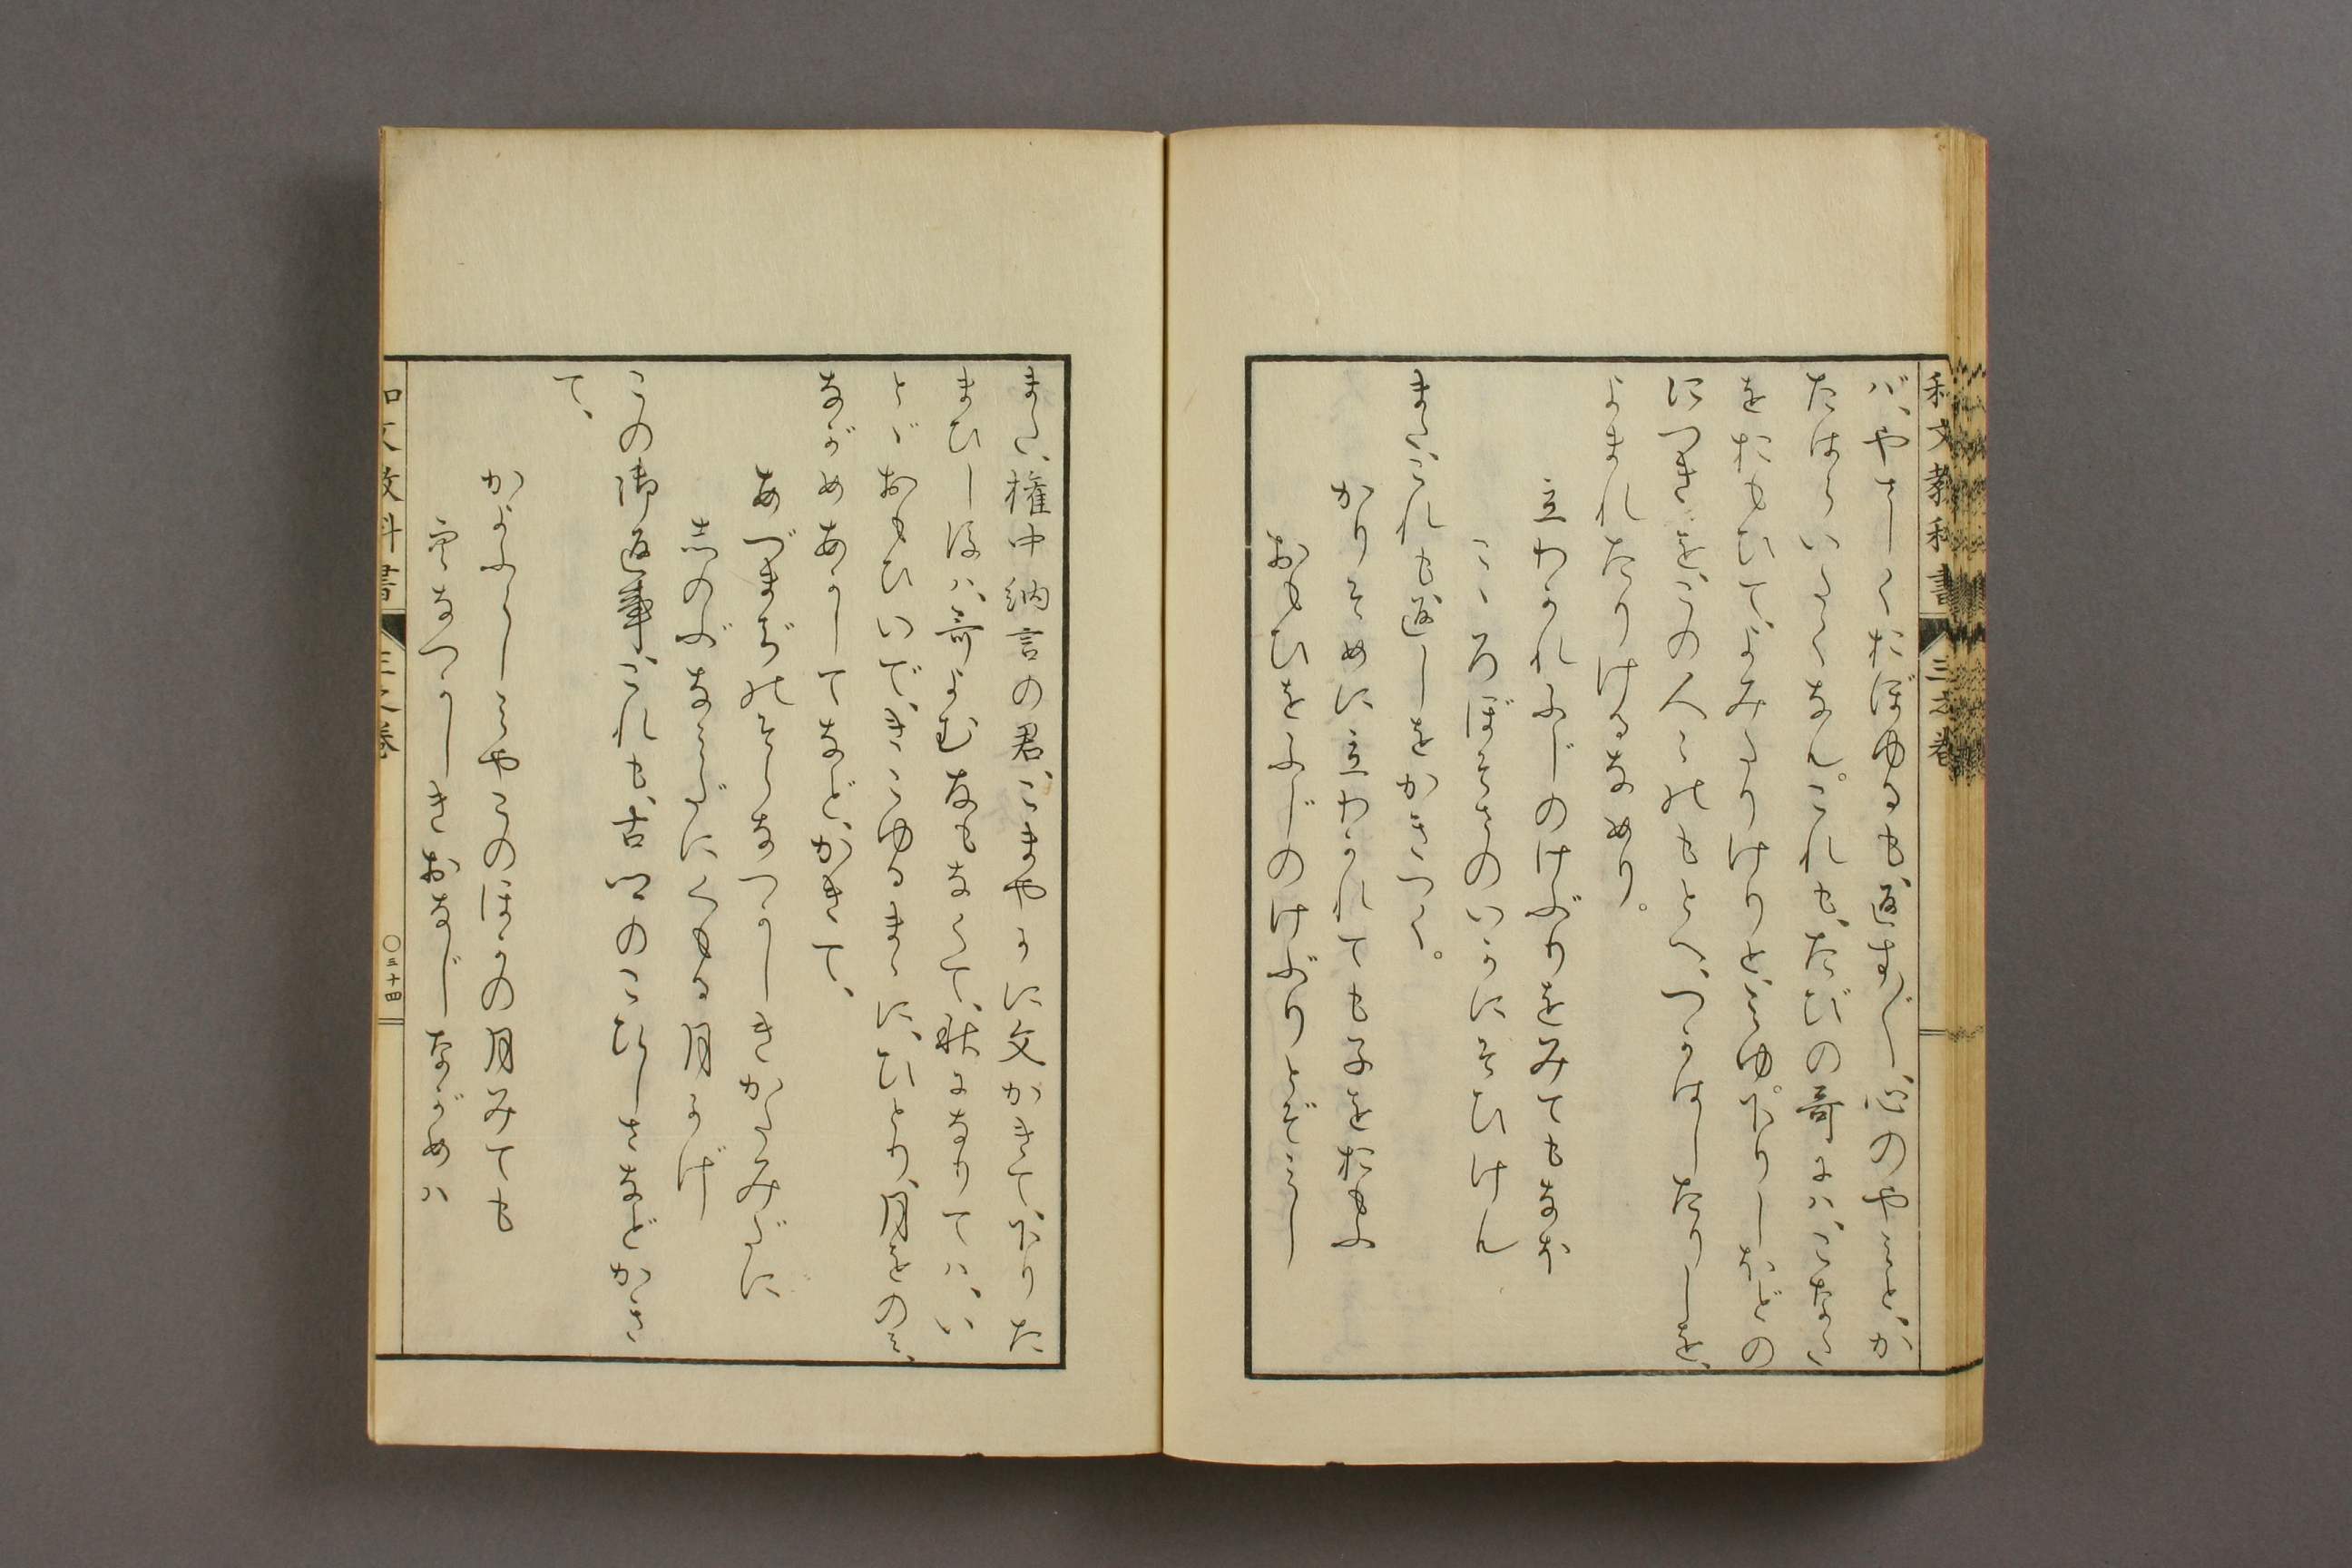 和文教科書 三之卷
ば、やさしくおぼゆるも、返す〴〵、心のやみと、か
たはらいたくなん。これも、たびの哥には、こなた
をおもひて、よみたりけりと、みゆ。下りしほどの
につきを、この人々のもとへ、つかはしたりしを、
よまれたりけるなめり。
立わかれふじのけぶりをみてもなほ
こゝろぼそさのいかにそひけん
また、これも返しをかきつく。
かりそめに立わかれても子をおもふ
おもひをふじのけぶりとぞみし
また、権中納言の君、こまやかに文かきて、下りた
まひし後は、哥よむ友もなくて、秋になりては、い
とゞおもひいで、きこゆるまゝに、ひとり、月をのみ、
ながめあかしてなど、かきて、
あづまぢのそらなつかしきかたみだに
志のぶなみだにくもる月かげ
この御返事、これも、古郷のこひしさなどかき
て、
かよふらしみやこのほかの月みても
空なつかしきおなじながめは
和文教科書 三之卷 〇三十四